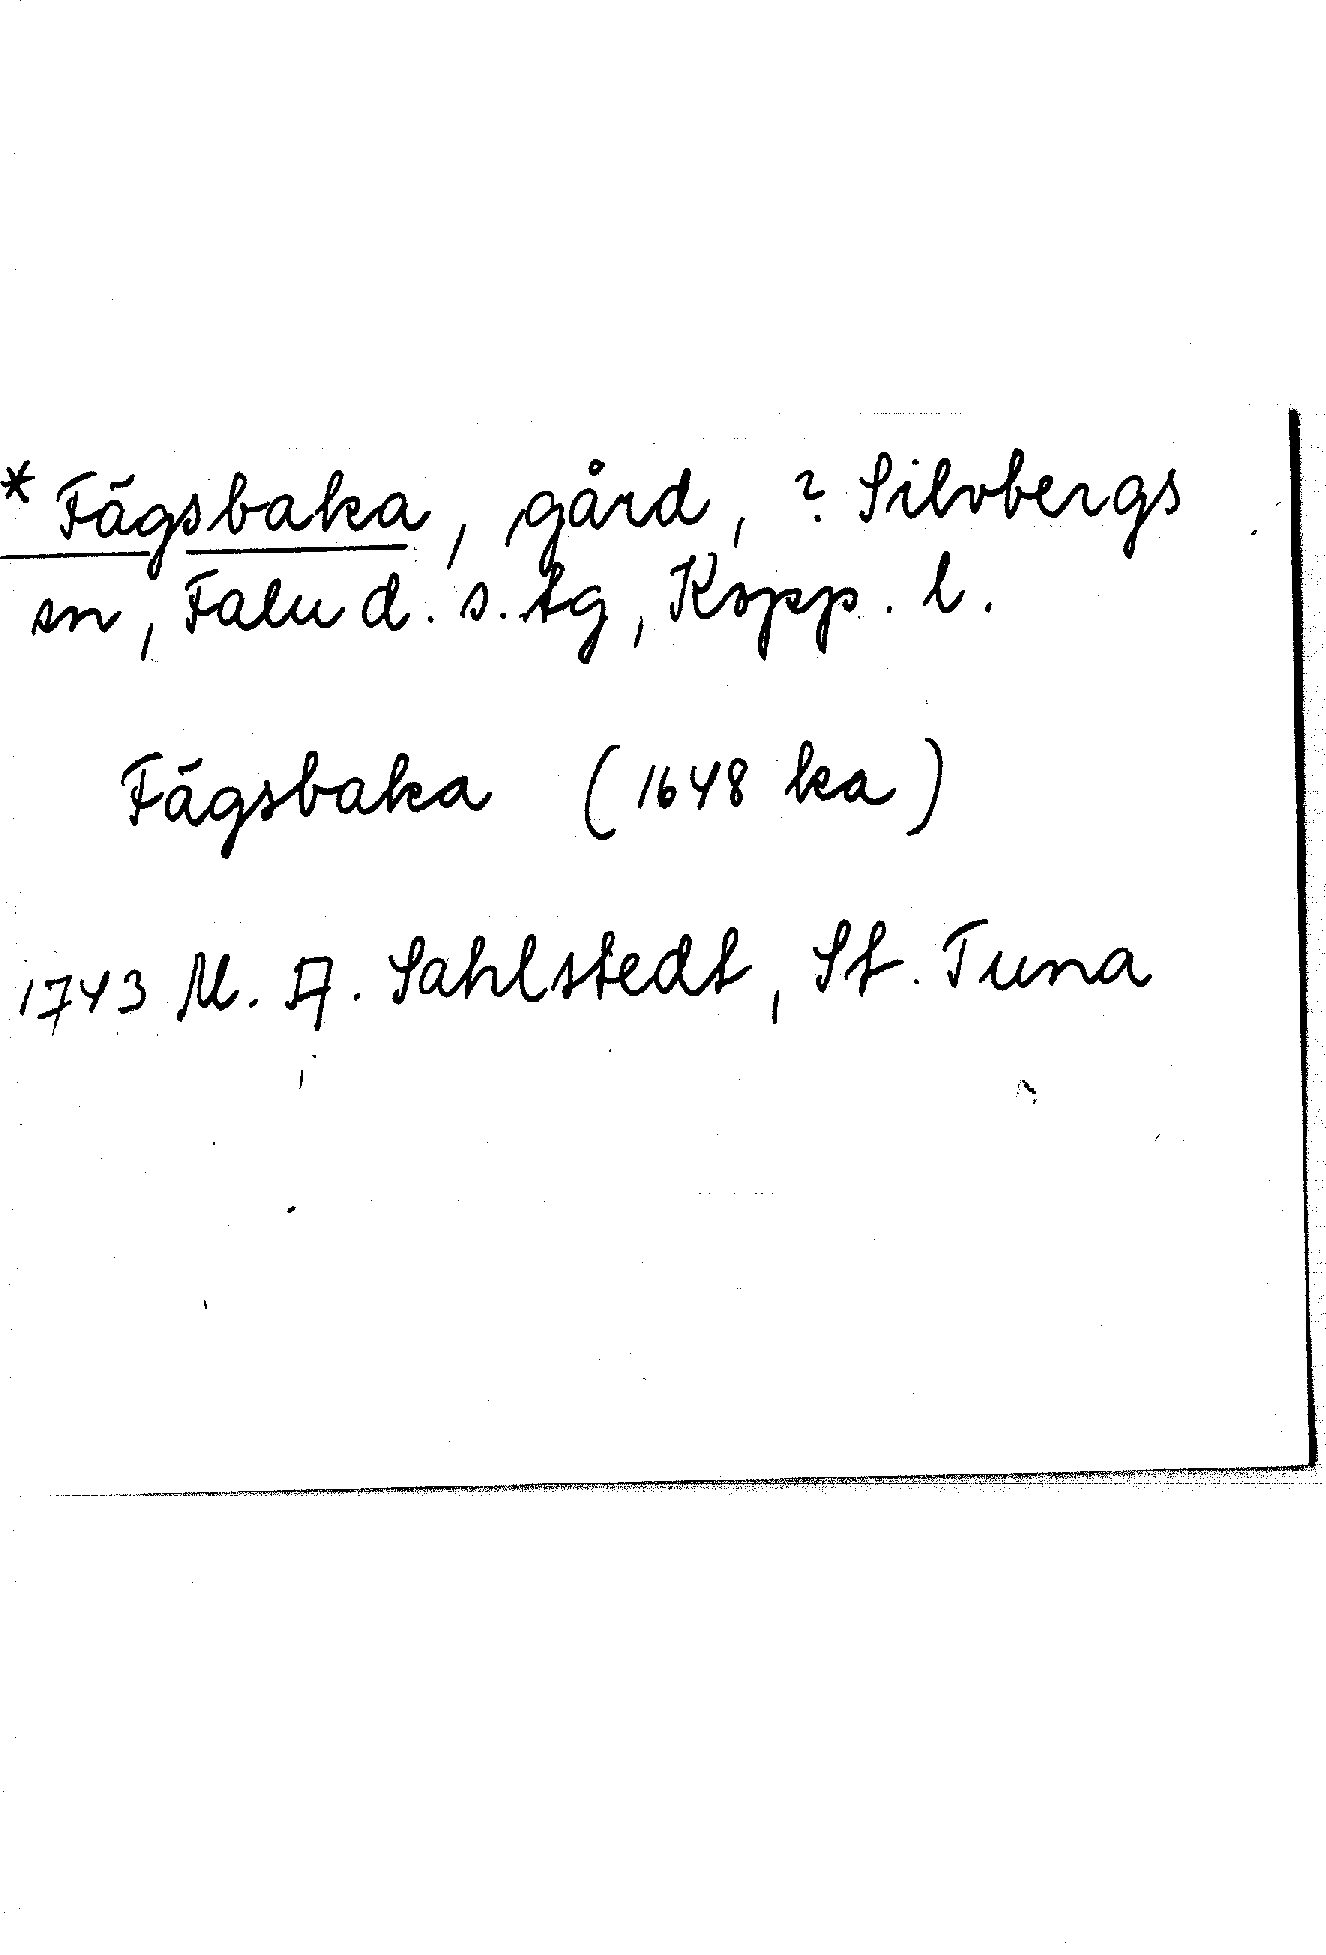 * Fägsbaka, gård, ? Silvbergs
sn, Falu d. s. tg, Kopp. l.
Fägsbaka (1648 ka)
1743 M. A. Sahlstedt, St. Tuna